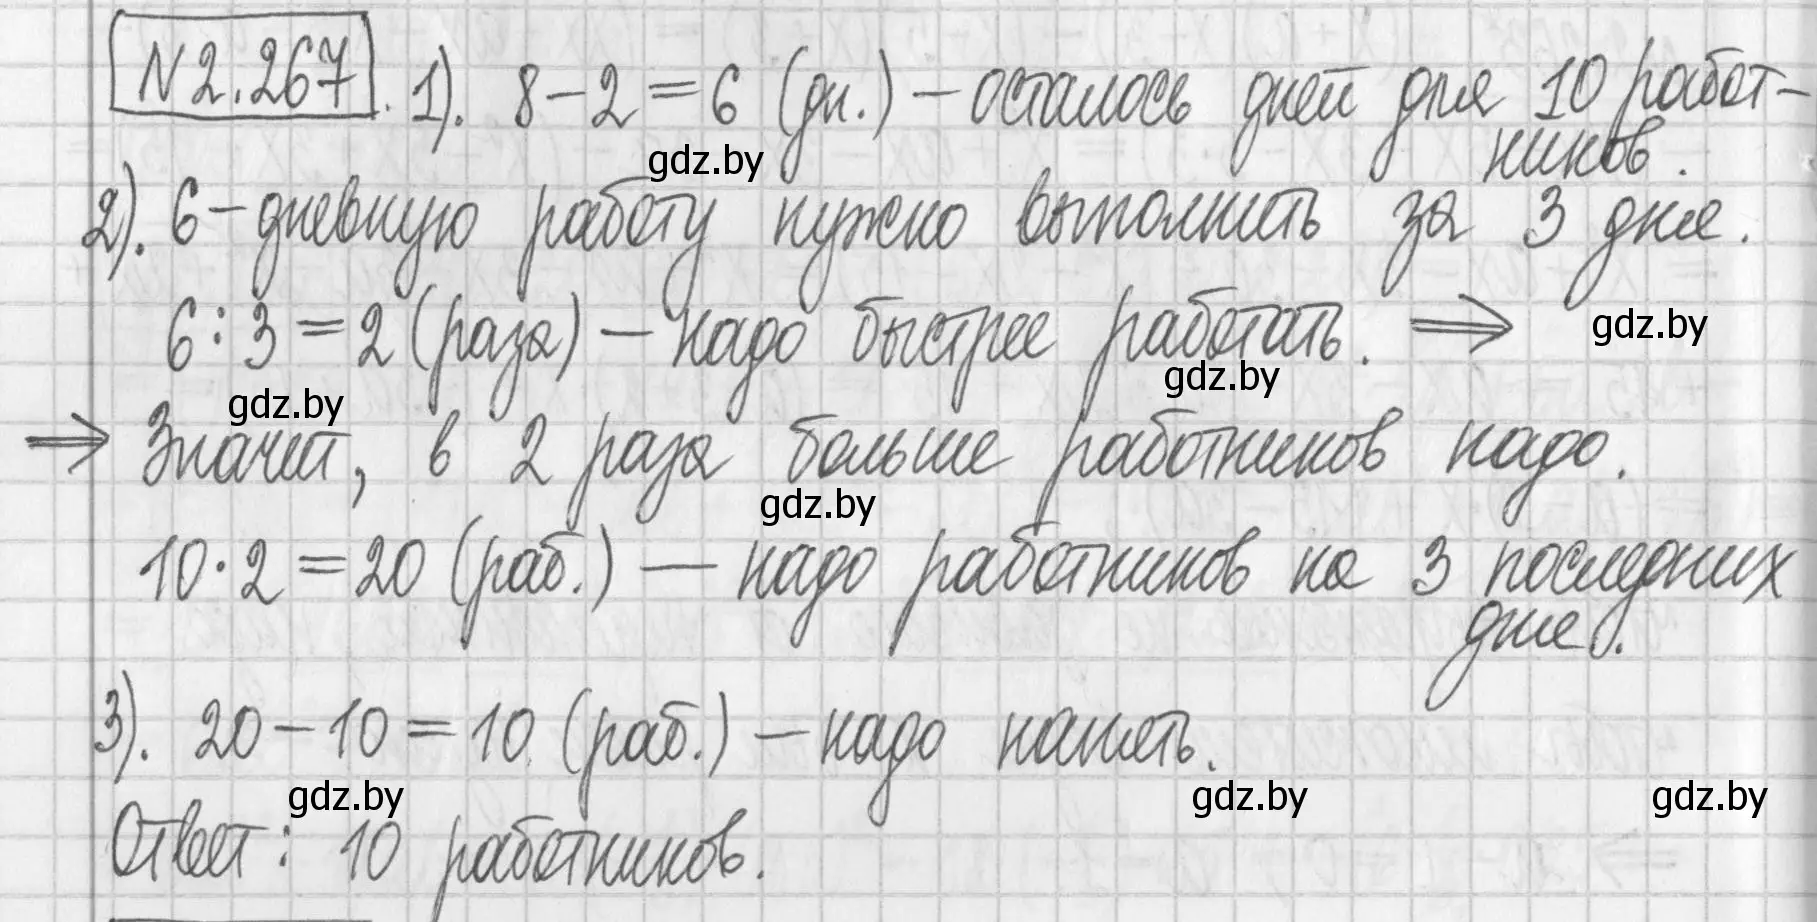 N2.267. 1). 8-2=6 (дн.) - осталось дней для 10 работ-
gdz.by
ников.
2). 6-дневную работу нужно выполнить за 3 дня.
6:3=2 (раза) - надо быстрее работать. ⇒
gdz.by
gdz.by
gdz.by
⇒ Значит, в 2 раза больше работников надо.
gdz.by
10·2=20 (раб.) — надо работников на 3 последних
дня.
3). 20-10=10 (раб.) - надо нанять.
gdz.by
gdz.by
gdz.by
Ответ: 10 работников.